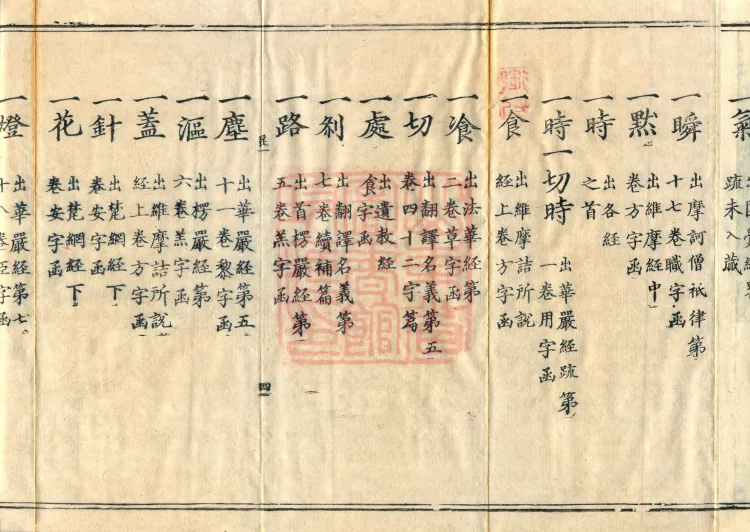 一瞬
出摩訶僧祇律第
十七卷職字函
一黙
出維摩經中
卷方字函
一時
出各經
之首
一時一切時
出華嚴經䟽第
一卷用字函
一食
出維摩詰所說
經上卷方字函
一飡
出法華經第
二卷草字函
一切
出翻譯名義第五
卷四十二字篇
一處
出遺教經
食字函
一剎
出翻譯名義第
七卷續補篇
一路
出首楞嚴經第
五卷羔字函
四
一塵
出華嚴經第五
十一卷黎字函
一漚
出楞嚴經第
六卷羔字函
一蓋
出維摩詰所說
經上卷方字函
一針
出梵網經下
卷安字函
一花
出梵網經下
卷安字函
一燈
出華嚴經第七